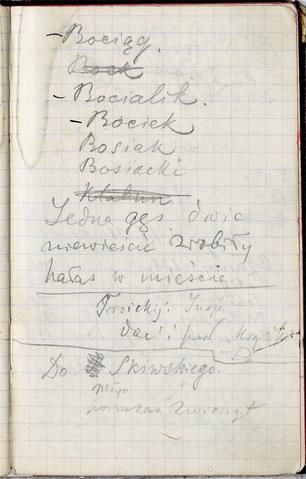 - Bociąg.
Bock
- Bocialik.
- Bociek
Bosiak
Bosiacki
Jedna gęś dwie
niewieście zrobiły
hałas w mieście
Troickij: Insp.
dać: pod
Do Skiwskiego.
zwierząt